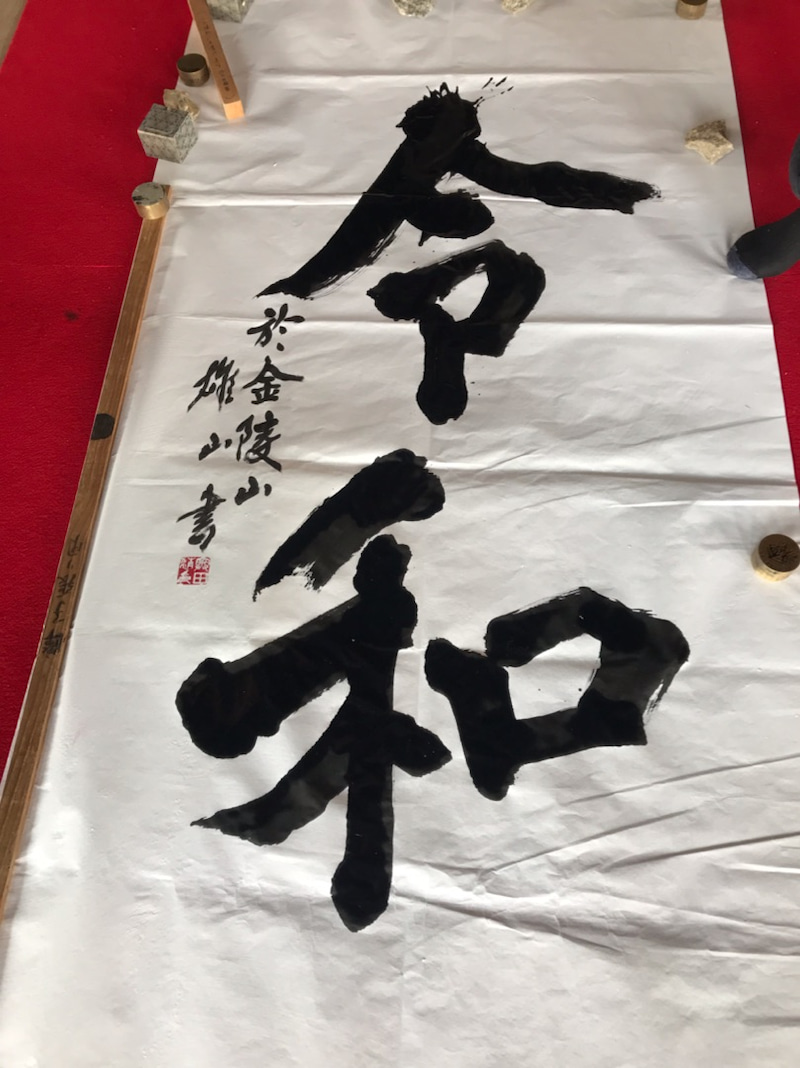 令和
於金陵山
雄山書